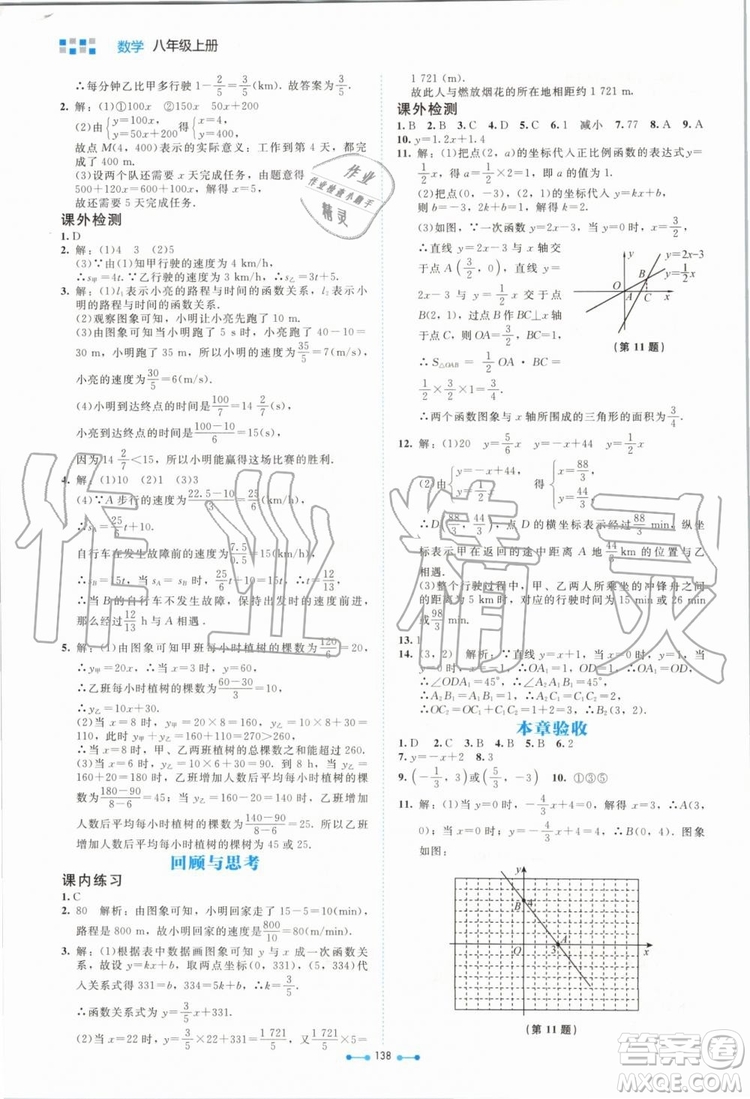 数学 八年级上册
∴每分钟乙比甲多行驶 1-2/5=3/5(km). 故答案为 3/5.
2. 解：(1)①100x ②150x 50x+200
(2)由{y=100x, y=50x+200 得{x=4, y=400.
故点 M(4，400)的实际意义：工作到第 4 天，都完成了 400 m.
(3)设两个队还需要 x 天完成任务，由题意得
500+120x=600+100x，解得 x=5，
故还需要 5 天完成任务.
课外检测
1. D
2. 解：(1)4 3 (2)5
(3)∵甲行驶的速度为
∴s甲=4t. ∵乙行驶的速度为
3. 解：(1)l₁表示小亮的路程与时间的函数关系，l₂表示小明的路程与时间的函数关系.
(2)观察图象可知，小明让小亮先跑了 10 m.
(3)由图象可知当小明跑了 5 s 时，小亮跑了 40-10=
30 m，小明跑了 35 m，则小明的速度为 35/5=7(m/s)，
小亮的速度为 30/5=6(m/s).
(4)小明到达终点的时间是 100/7=14 2/7(s)，
小亮到达终点的时间是 (100-10)/6=15(s)，
因为 14 2/7<15，所以小明能赢得这场比赛的胜利.
4. 解：(1)10 (2)1 (3)3
(4)∵A 步行的速度为 (22.5-10)/(3-1.5)=25/3(km/h)，
∴s_A=25/6 t+10.
自行车在发生故障前的速度为 7.5/0.5=15(km/h)，
∴当 B 的自行车不发生故障，保持出发时的速度前进，
那么经过 12/13 h 与 A 相遇.
5. 解：(1)由图象可知甲班每小时植树的棵数为 120/6=20，
∴y甲=20x. ∴乙班每小时植树的棵数为 (60-30)/3=10，
∴y乙=10x+30.
(2)当 x=8 时，y甲=20×8=160，y乙=10×8+30=110，
∴当 x=8 时，甲、乙两班植树的总棵数之和为 270.
(3)当 x=6 时，y乙=90.
∴当 x=8 时，甲、乙两班植树的总棵数相差 20 时，乙班增加人数后平均每小时植树的棵数为 (140-90)/(8-6)=25 或乙班增加
人数后平均每小时植树的棵数为 (180-90)/(8-6)=45，所以乙班
增加人数后平均每小时植树的棵数为 45 或 25.
回顾与思考
课内练习
1. C
2. 80 解析：由图象可知，小明回家用了 15-5=10(min)，
路程是 800 m，故小明回家的速度是 800/10=80(m/min).
3. 解：(1)根据表中数据画图象可知 y 与 x 成一次函数关
系，故设 y=kx+b，取两点(0，331)，(5，334)
代入关系式得 331=b，334=5k+b，解得 k=3/5.
∴函数关系式为 y=3/5 x+331.
(2)当 x=22 时，y=3/5×22+331=1 721/5，1 721/5×5=
1 721(m).
故此人与燃放烟花的所在地相距约 1 721 m.
课外检测
1. B 2. B 3. C 4. D 5. C 6. 1 减小 7. 77 8. A 9. A
10. y=1.2x+1.4
11. 解：(1)把点(2，a)的坐标代入正比例函数的表达式 y=
1/2 x，得 a=1，即 a 的值为 1.
(2)把点
的坐标代入 y=kx+b，
(3)如图，∵一次函数 y=2x-3，当 y=0 时，x=3/2，
∴直线 y=2x-3 与 x 轴交
于点 A(3/2，0)，
∵直线 y=2x-3 与直线 y=
1/2 x 交于点 B(2，1)，过点 B
作 BC⊥x 轴于点 C，
∴S△OAB=1/2×OA·BC=
1/2×3/2×1=3/4.
∴两个函数图象与 x 轴所围成的三角形的面积为 3/4.
y y=2x-3 y=1/2 x B O A C x
(第 11 题)
12. 解：(1)20 y=5/6 x y=-x+44 y=1/2 x
(2)由{y=-x+44, y=1/2 x 得{x=88/3, y=44/3.
∴D(88/3，44/3)，点 D 的横坐标表示行驶 88/3 min，纵坐
标表示甲在返回的途中距离 A 地 44/3 km 的位置与乙
相遇.
(3)整个行驶过程中，甲、乙两人所乘坐的冲锋舟之间的
距离为 5 km 时，对应的行驶时间为 15 min 或 26 min
或 98/3 min.
13. 1
14. (3，2) 解析：∵直线 y=-x+1，当
∴∠ODA₁=45°，
∴A₂B₁=A₁B₁=1，
本章验收
1. D 2. C 3. B 4. B 5. B 6. 2
7. y=-x+2
9. (-1/3，3)或(5/3，-3) 10. ①③⑤
11. 解：(1)当 y=0 时，-4/3 x+4=0，解得 x=3，∴A(3，
0)，当 x=0 时，y=-4/3 x+4=4，∴B(0，4). 图象
如图：
y B 4 O 3 A x
(第 11 题)
138
作业
作业检查小助手
精灵
作业精灵
答案圈
MXQE.COM